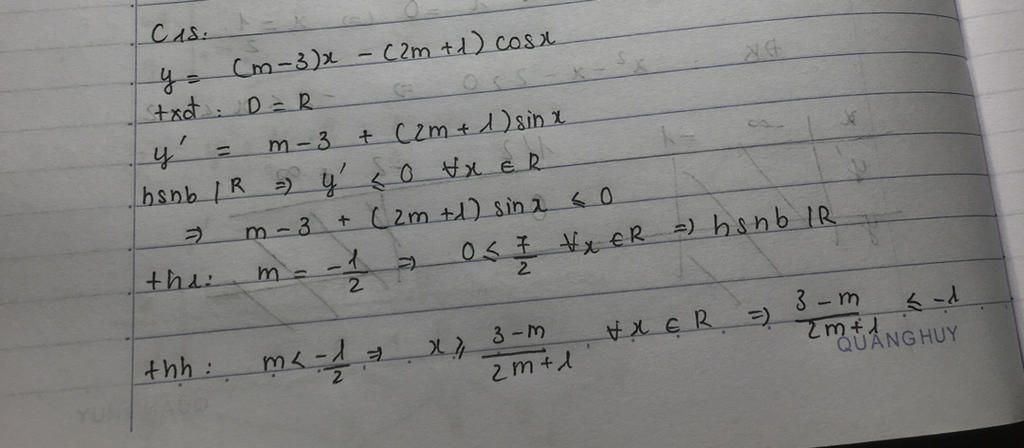 C15.
y = (m-3)x - (2m+1) cosx
txđ: D = R
y' = m-3 + (2m+1) sinx
hsnb /R ⇒ y' ≤ 0 ∀x ∈ R
⇒ m-3 + (2m+1) sinx ≤ 0
th1: m = -1/2 ⇒ 0 ≤ 7/2 ∀x ∈ R ⇒ hsnb /R
thh: m < -1/2 ⇒ x ≥ (3-m)/(2m+1) ∀x ∈ R ⇒ (3-m)/(2m+1) ≤ -1
QUANG HUY